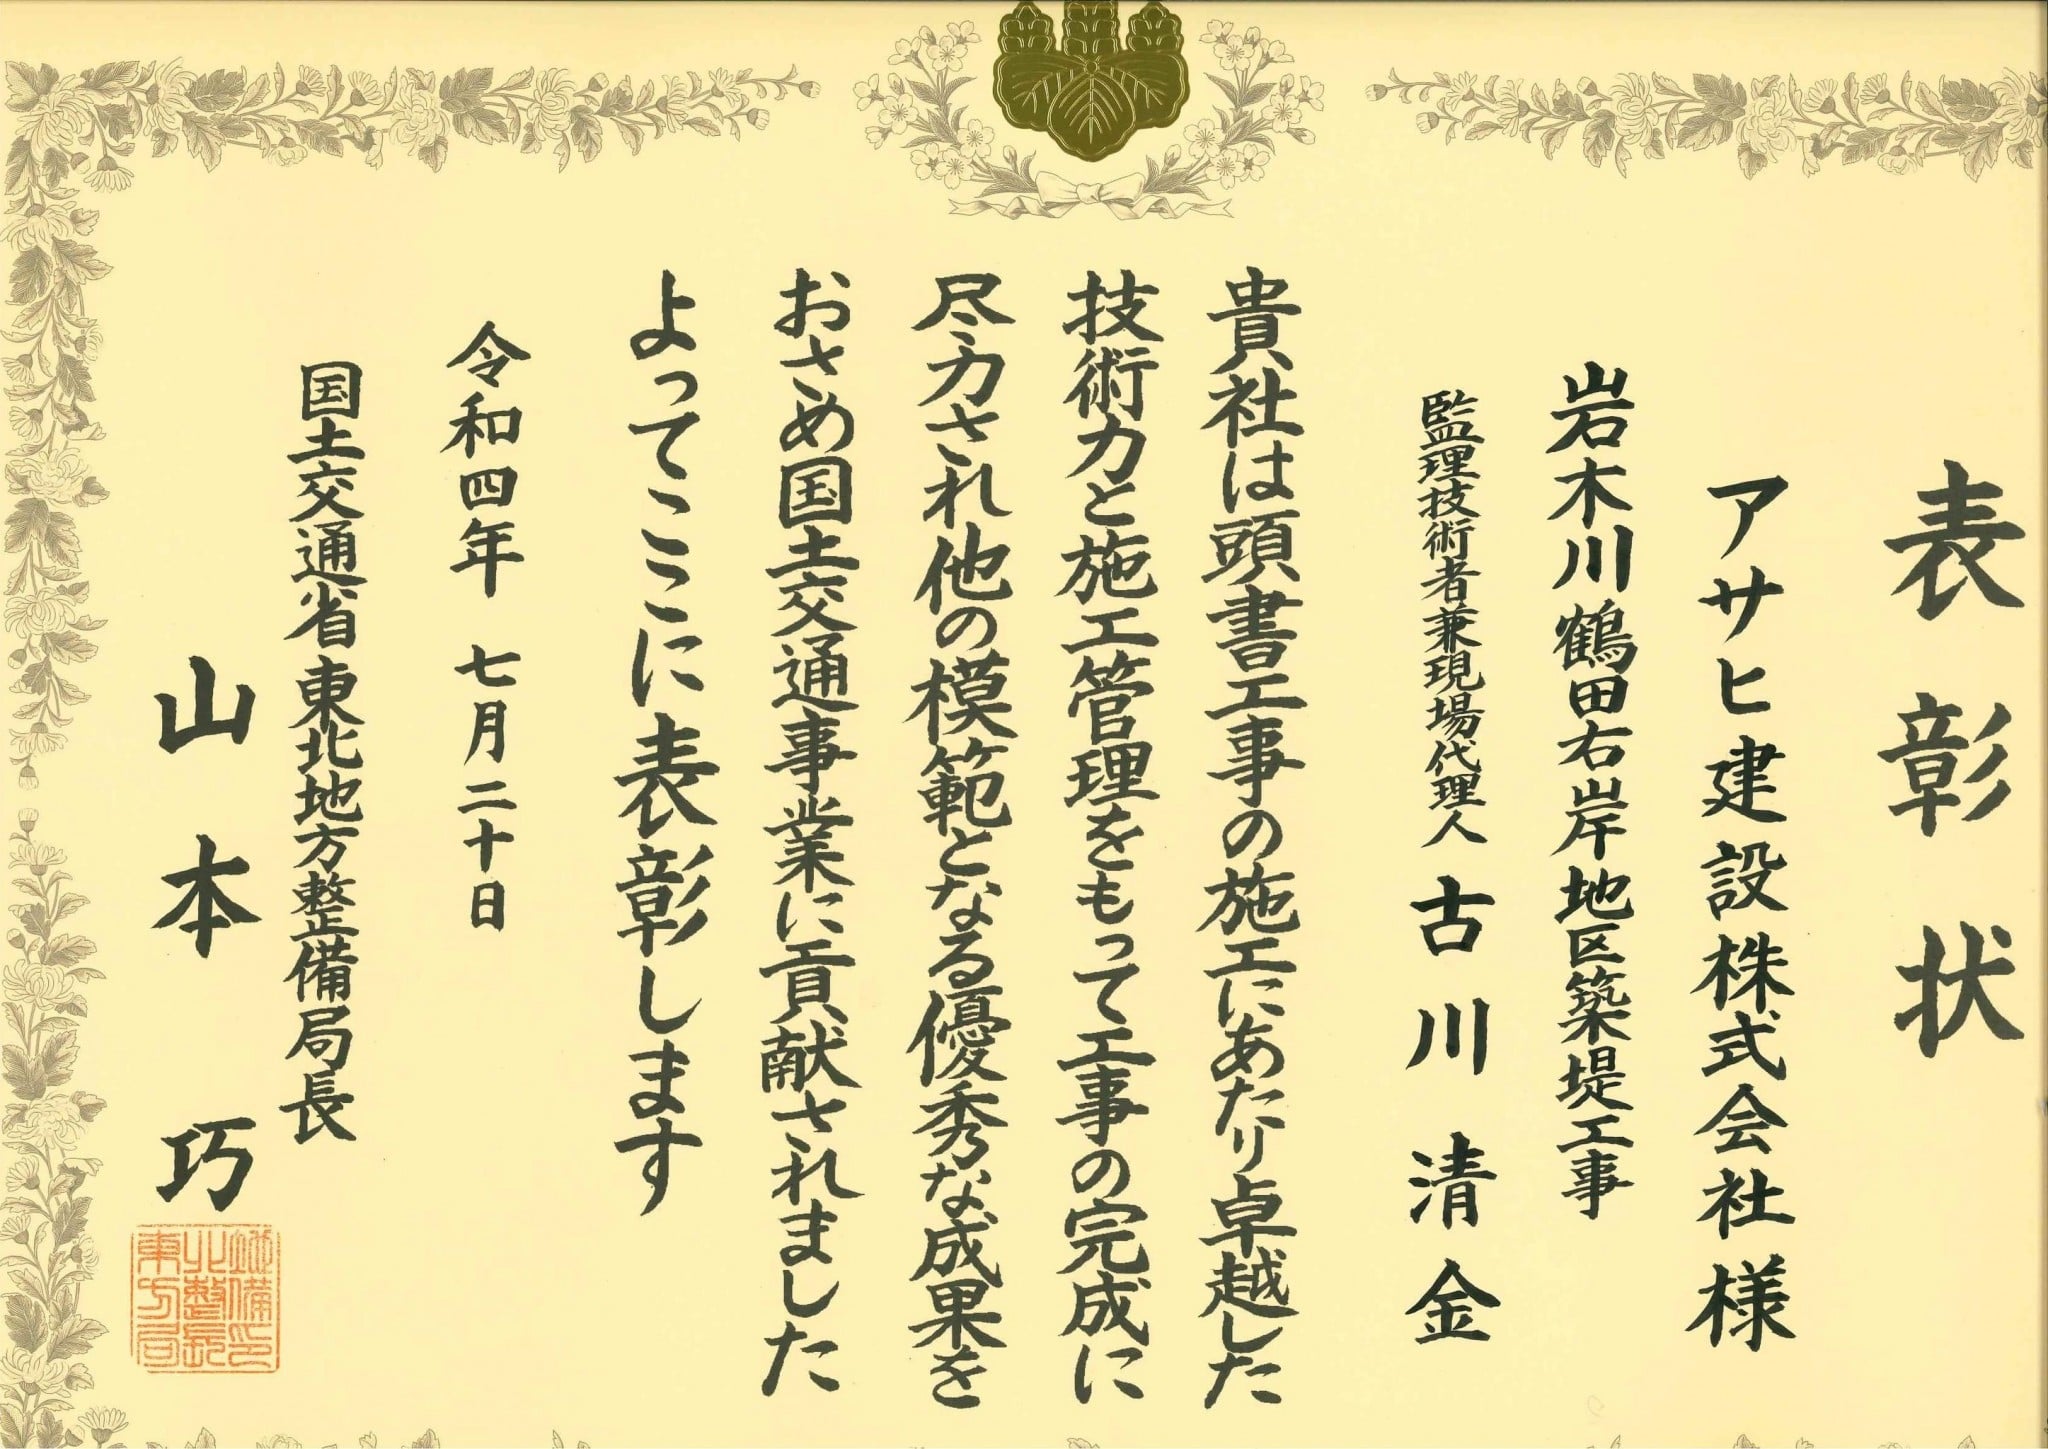 表彰状
アサヒ建設株式会社様
岩木川鶴田右岸地区築堤工事
監理技術者兼現場代理人 古川清金
貴社は頭書工事の施工にあたり卓越した
技術力と施工管理をもって工事の完成に
尽力され他の模範となる優秀な成果を
おさめ国土交通事業に貢献されました
よってここに表彰します
令和四年 七月二十日
国土交通省東北地方整備局長
山本 巧